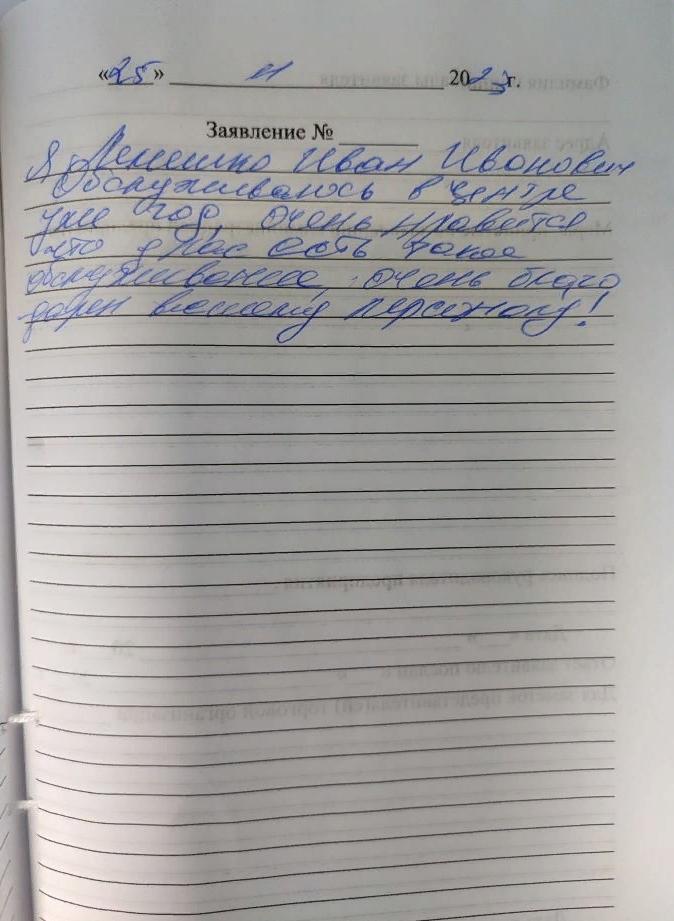 «25» 11 2023 г.
Заявление № 
Я, Лемешко Иван Иванович
Обслуживаюсь в центре
уже год, очень нравится
что у нас есть такое
обслуживание, очень благо
дарен вашему персоналу!